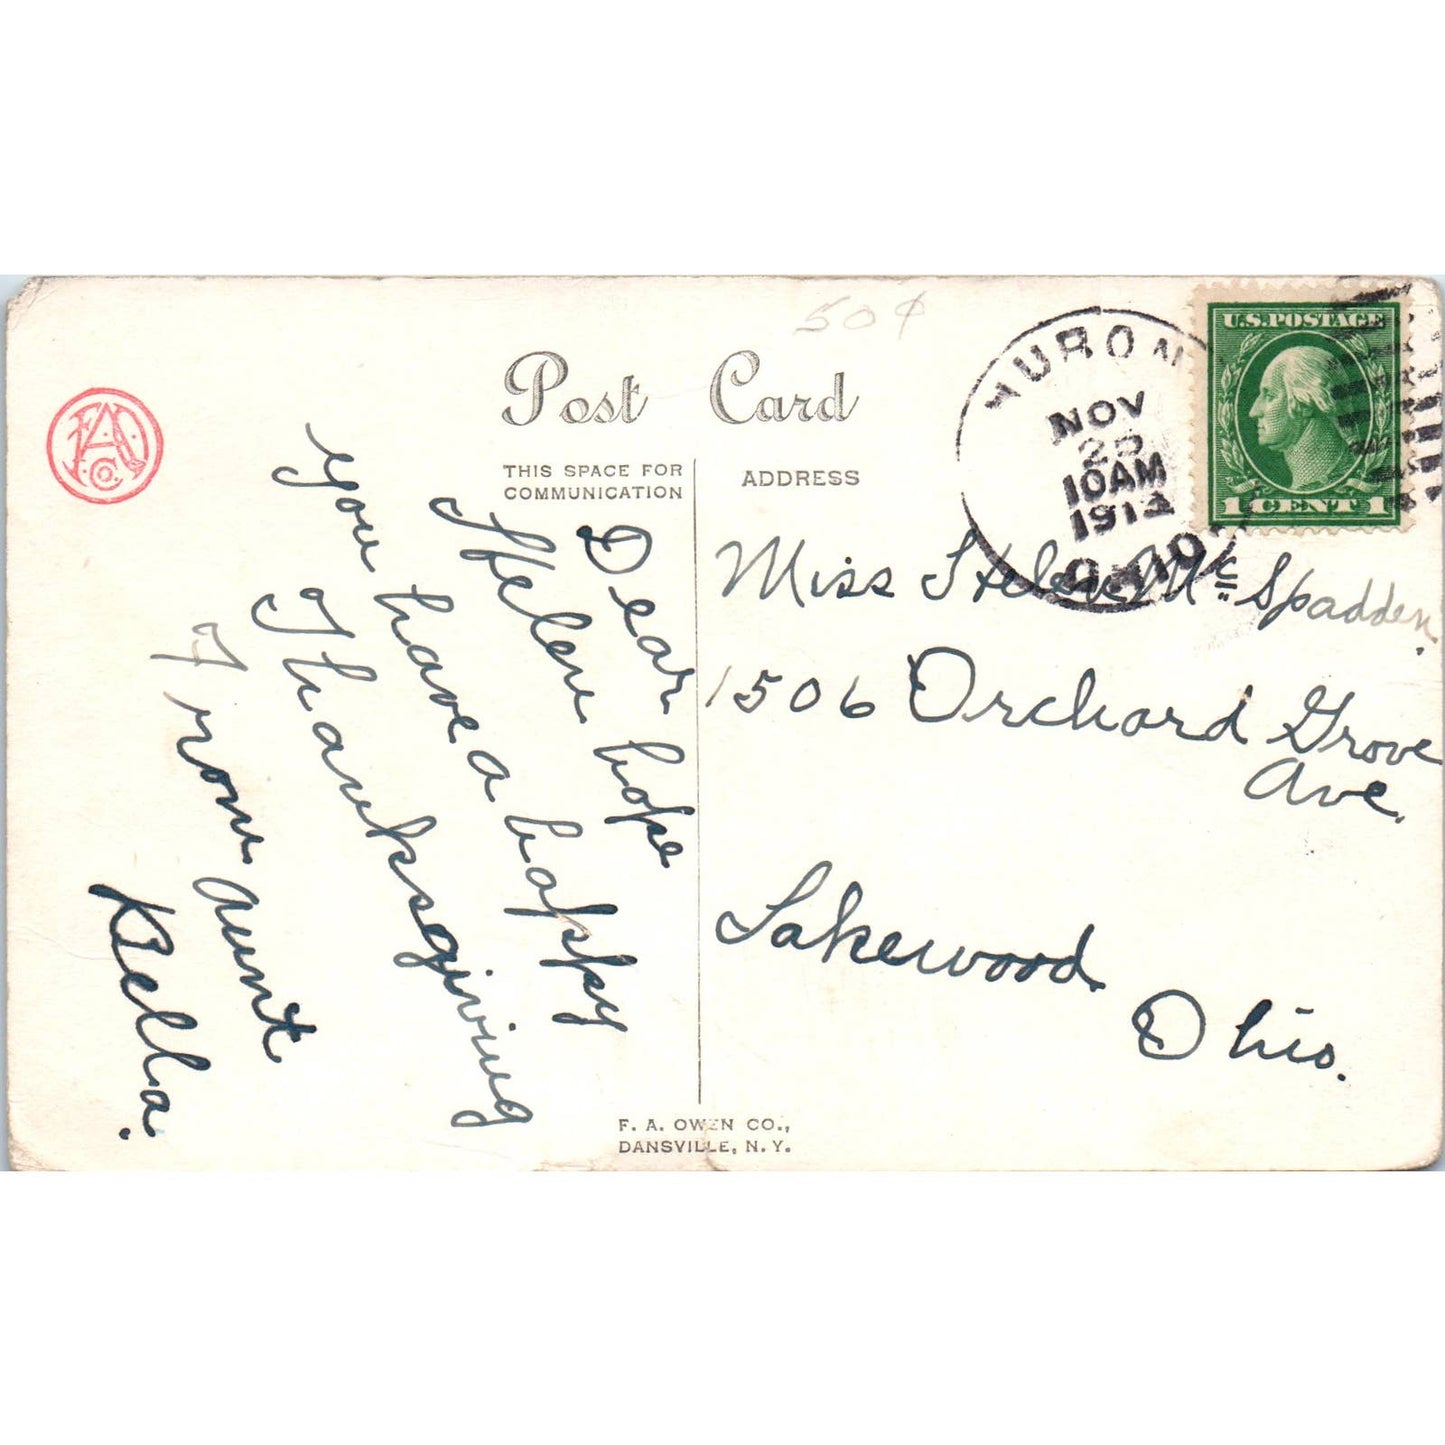 50¢
Post Card
THIS SPACE FOR
COMMUNICATION
ADDRESS
F.A.O. Co.
HURON
NOV
25
10AM
OHIO
U.S.POSTAGE
1 CENT 1
Dear
Helen hope
you have a happy
Thanksgiving
From aunt
Bella.
Miss Helen Mc Spadden.
1506 Orchard Grove
Ave.
Lakewood.
Ohio.
F. A. OWEN CO.,
DANSVILLE, N. Y.